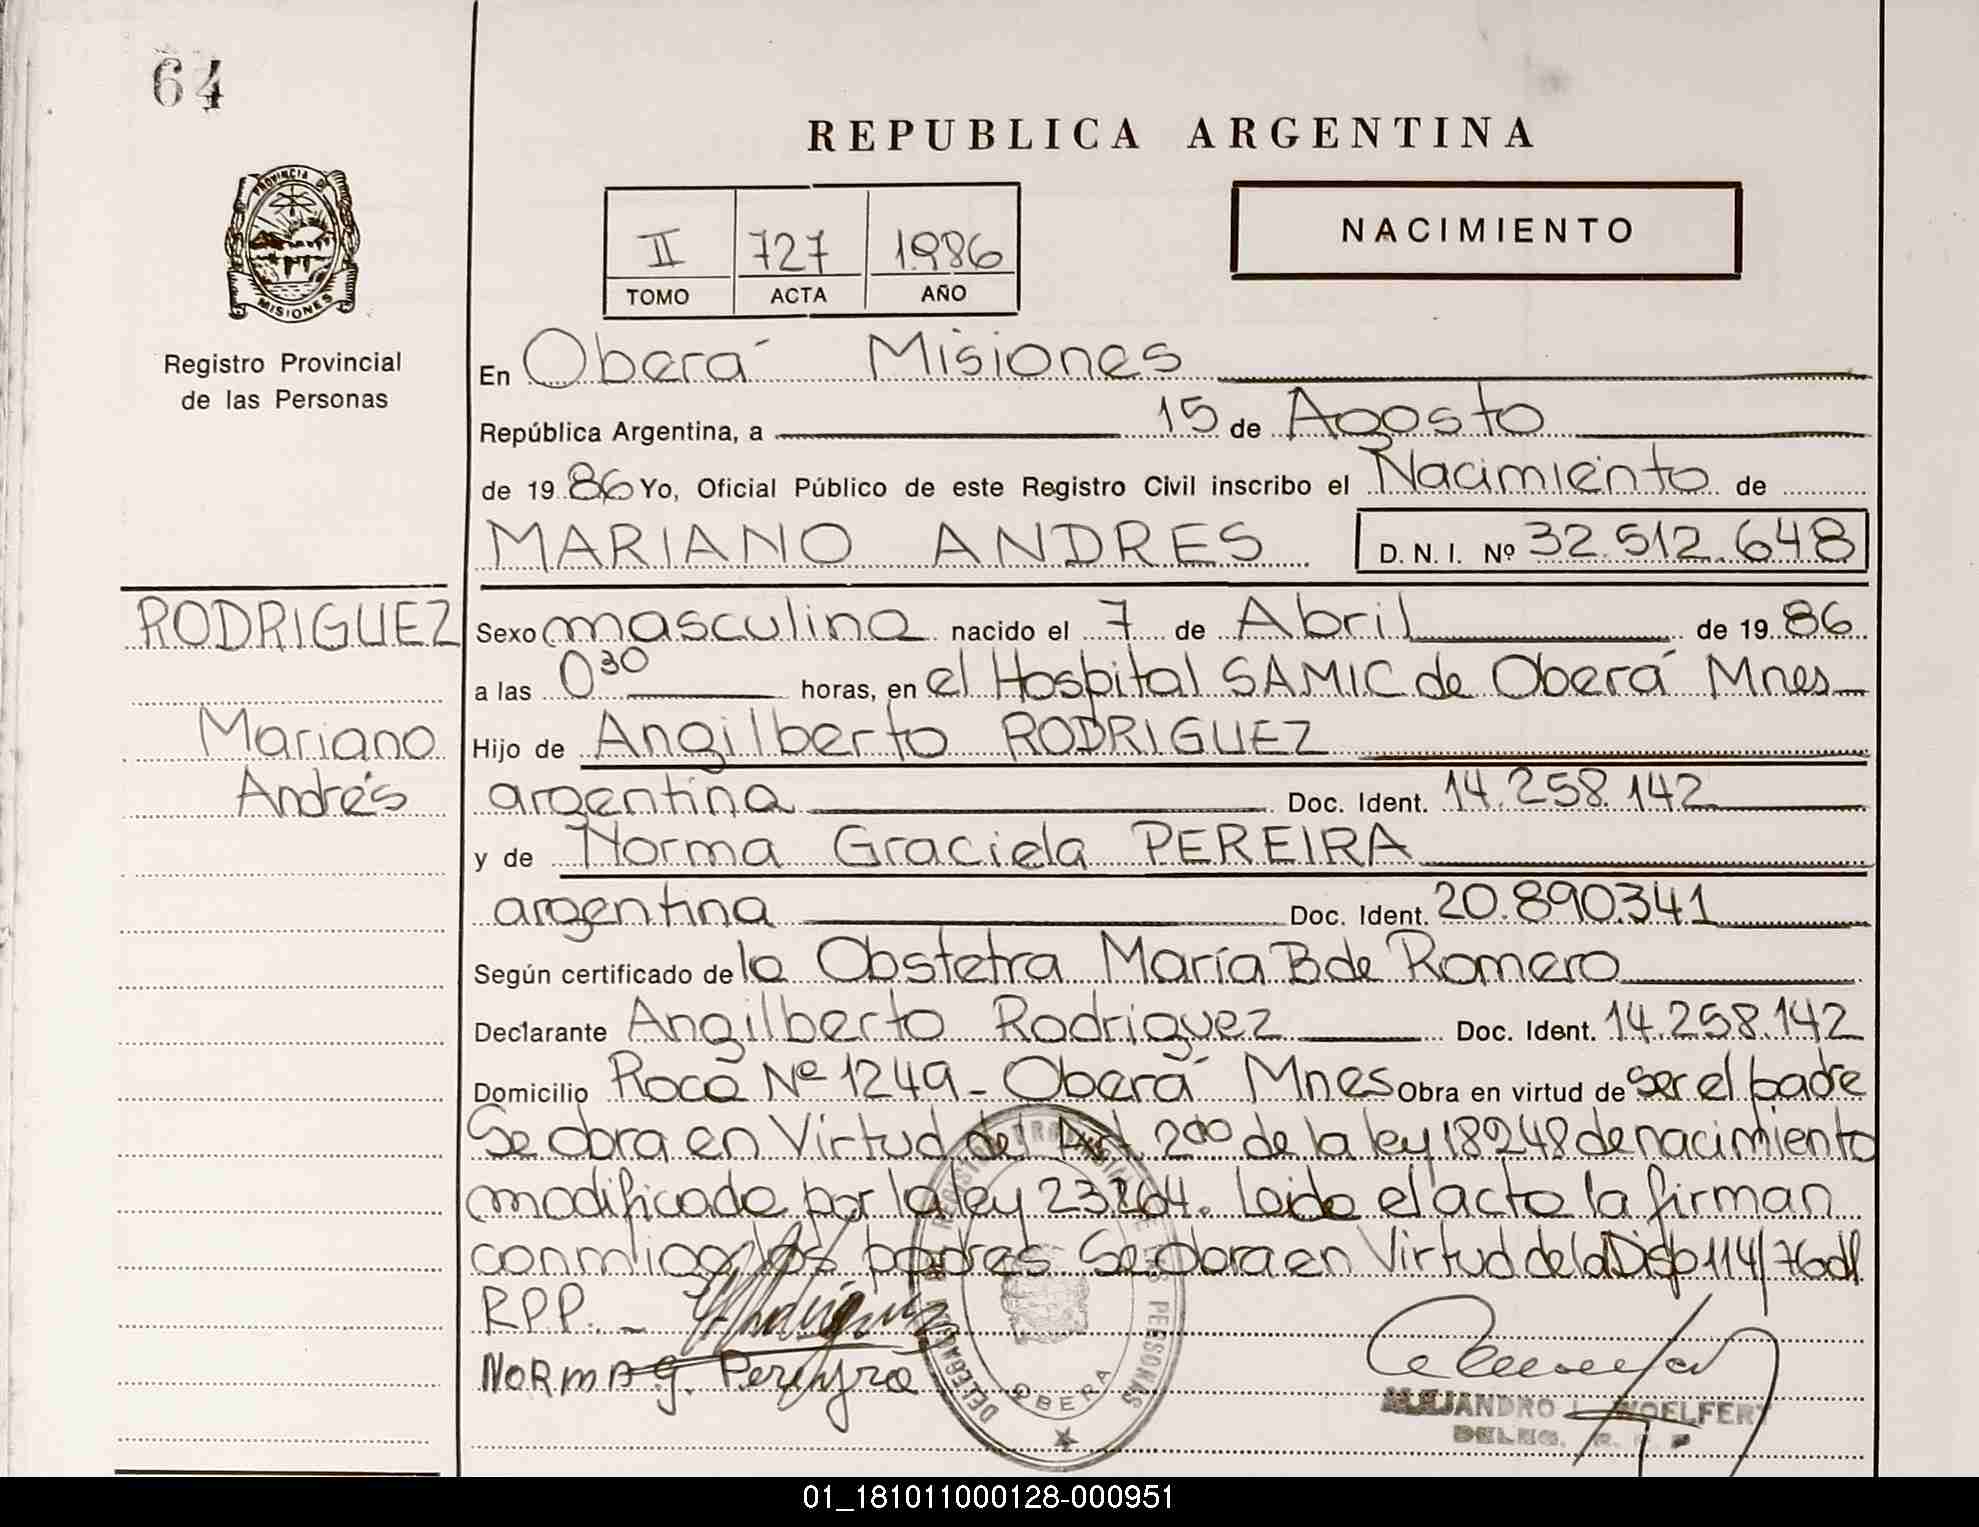 64
REPUBLICA ARGENTINA
PROVINCIA DE
MISIONES
Registro Provincial
de las Personas
II 727 1986
TOMO ACTA AÑO
NACIMIENTO
En Oberá Misiones
República Argentina, a 15 de Agosto
de 19 86 Yo, Oficial Público de este Registro Civil inscribo el Nacimiento de
MARIANO ANDRES D. N. I. Nº 32.512.648
RODRIGUEZ
Mariano
Andrés
Sexo masculino nacido el 7 de Abril de 19 86
a las 0 30 horas, en el Hospital SAMIC de Oberá Mnes
Hijo de Angilberto RODRIGUEZ
argentina Doc. Ident. 14.258.142
y de Norma Graciela PEREIRA
argentina Doc. Ident. 20.890.341
Según certificado de la Obstetra María B de Romero
Declarante Angilberto Rodriguez Doc. Ident. 14.258.142
Domicilio Roca Nº 1249 - Oberá Mnes Obra en virtud de ser el padre
Se obra en Virtud del Art. 2do de la ley 18248 de nacimiento
modificado por la ley 23264. Leida el acta la firman
conmigo los padres Se obra en Virtud de la Disp 114/76 dl
RPP. -
NORMA G. Pereyra
OBERA
ALEJANDRO L. WOELFERT
DELEG. R. P. P
01_181011000128-000951